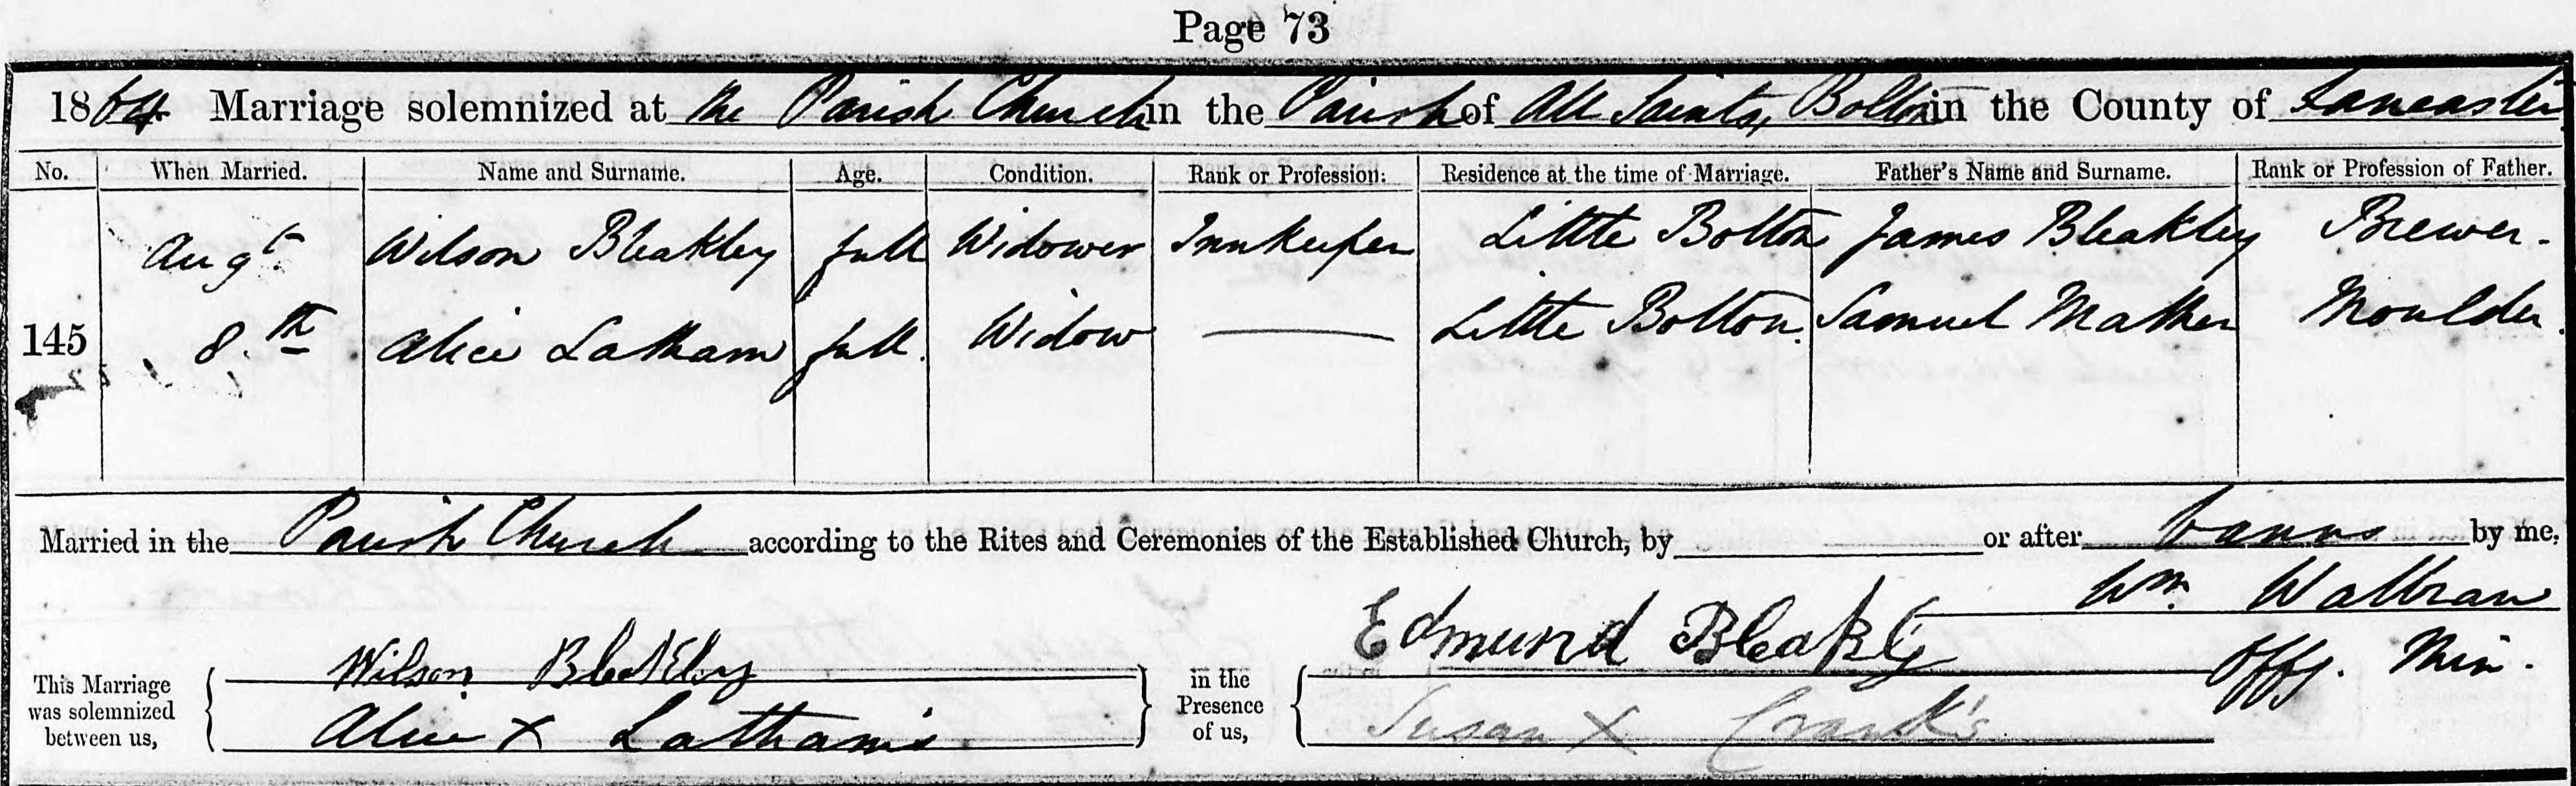 Page 73
1864 Marriage solemnized at the Parish Church in the Parish of All Saints, Bolton in the County of Lancaster
No. When Married. Name and Surname. Age. Condition. Rank or Profession. Residence at the time of Marriage. Father's Name and Surname. Rank or Profession of Father.
Augt. Wilson Bleakley full Widower Innkeeper Little Bolton James Bleakley Brewer.
145 8.th Alice Latham full. Widow Little Bolton. Samuel Mather Moulder.
Married in the Parish Church according to the Rites and Ceremonies of the Established Church, by or after banns by me,
Wm. Walbran
Offg. Min.
This Marriage was solemnized between us,
Wilson Bleakley
Alice X Latham's
in the Presence of us,
Edmund Bleakly
Susan X Crank's